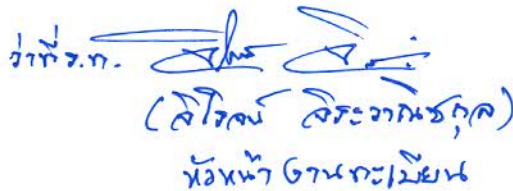 ว่าที่ ร.ท.
(วิโรจน์ จิระวาณิชกุล)
หัวหน้างานทะเบียน